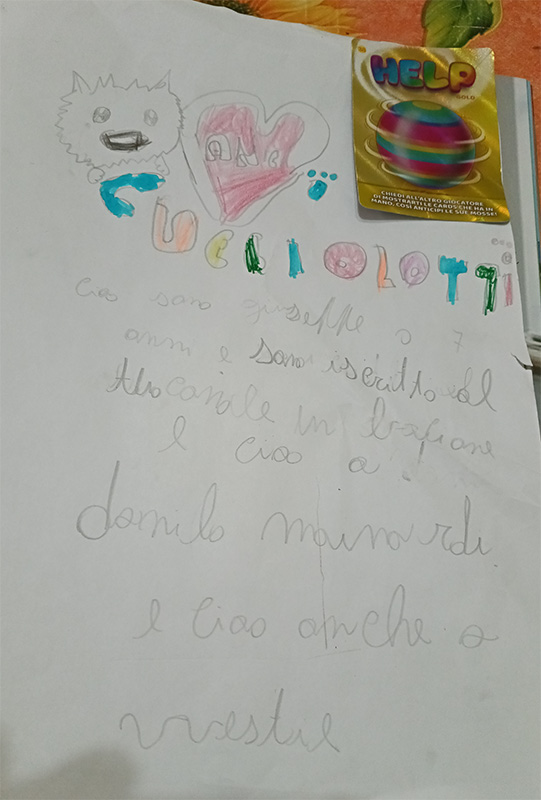 AMO
HELP
SOLO
CHIEDI ALL'ALTRO GIOCATORE
DI MOSTRARTI LE CARDS CHE HA IN
MANO, COSÌ ANTICIPI LE SUE MOSSE!
CUCCIOLOTTI
Ciao sono giuseppe o 7
anni e sono iscritto al
tuo canale in
e ciao a
damilo mainardi
e ciao anche a